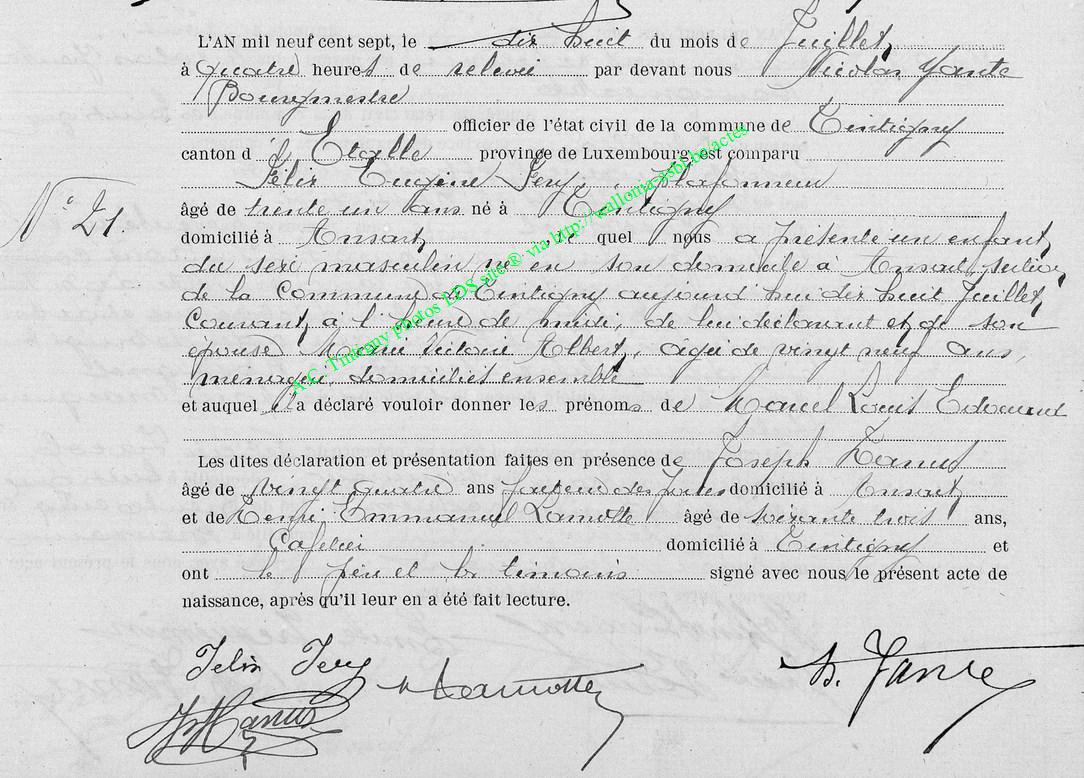 L'AN mil neuf cent sept, le dix huit du mois de Juillet,
à Quatre heures de relevée par devant nous Nicolas Yante
Bourgmestre
officier de l'état civil de la commune de Tintigny
canton d'Etalle province de Luxembourg, est comparu
Félix Eugène Jery, Plafonneur
N° 21.
âgé de trente un ans né à Tintigny
domicilié à Ansart, le quel nous a présenté un enfant,
du sexe masculin né en son domicile à Ansart, section
de la Commune de Tintigny aujourd'hui dix huit Juillet,
Courant, à l'heure de midi, de lui déclarant et de son
épouse Marie Victoire Albert, âgée de vingt neuf ans,
ménagère, domiciliés ensemble
et auquel il a déclaré vouloir donner les prénoms de Marcel Louis Edouard
Les dites déclaration et présentation faites en présence de Joseph Hanus
âgé de vingt quatre ans facteur des postes domicilié à Ansart,
et de Henri Emmanuel Lamotte âgé de soixante trois ans,
Cafetier domicilié à Tintigny et
ont le père et les témoins signé avec nous le présent acte de
naissance, après qu'il leur en a été fait lecture.
Felix Jery
Lamotte
N. Yante
Hanus
A.C. Tintigny photos LDS site ® via http://wallonia-asbl.be/actes